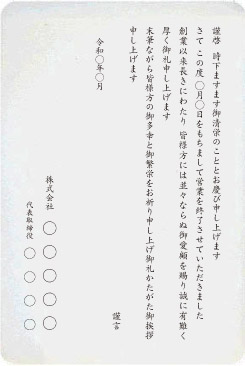 謹啓 時下ますます御清栄のこととお慶び申し上げます
さて この度 〇月〇日をもちまして営業を終了させていただきました
創業以来長きにわたり 皆様方には並々ならぬ御愛顧を賜り誠に有難く
厚く御礼申し上げます
末筆ながら皆様方の御多幸と御繁栄をお祈り申し上げ御礼かたがた御挨拶
申し上げます
謹言
令和〇年〇月
株式会社 〇〇〇〇
代表取締役 〇〇〇〇